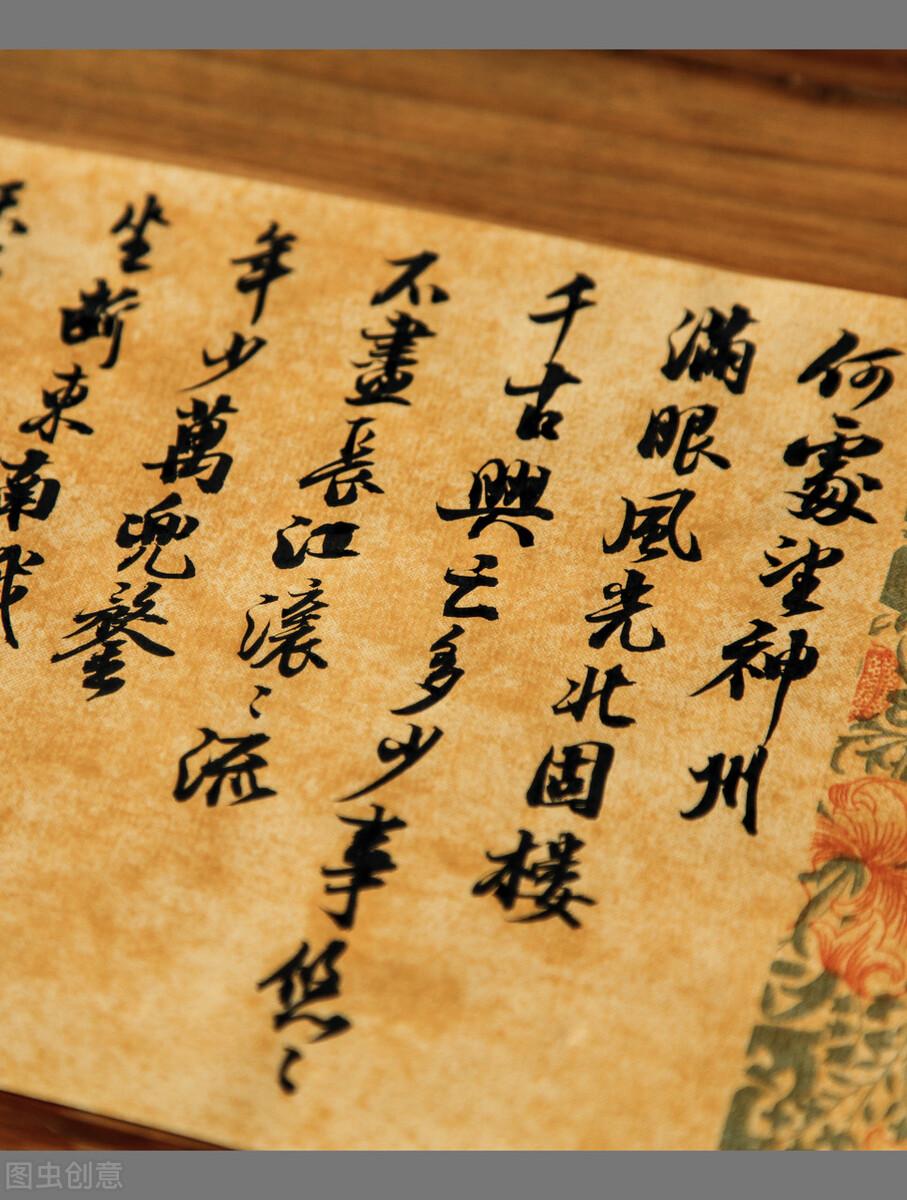 何處望神州
滿眼風光北固楼
千古興亡多少事悠〻
不盡長江滾〻流
年少萬兜鍪
坐断東南
图虫创意